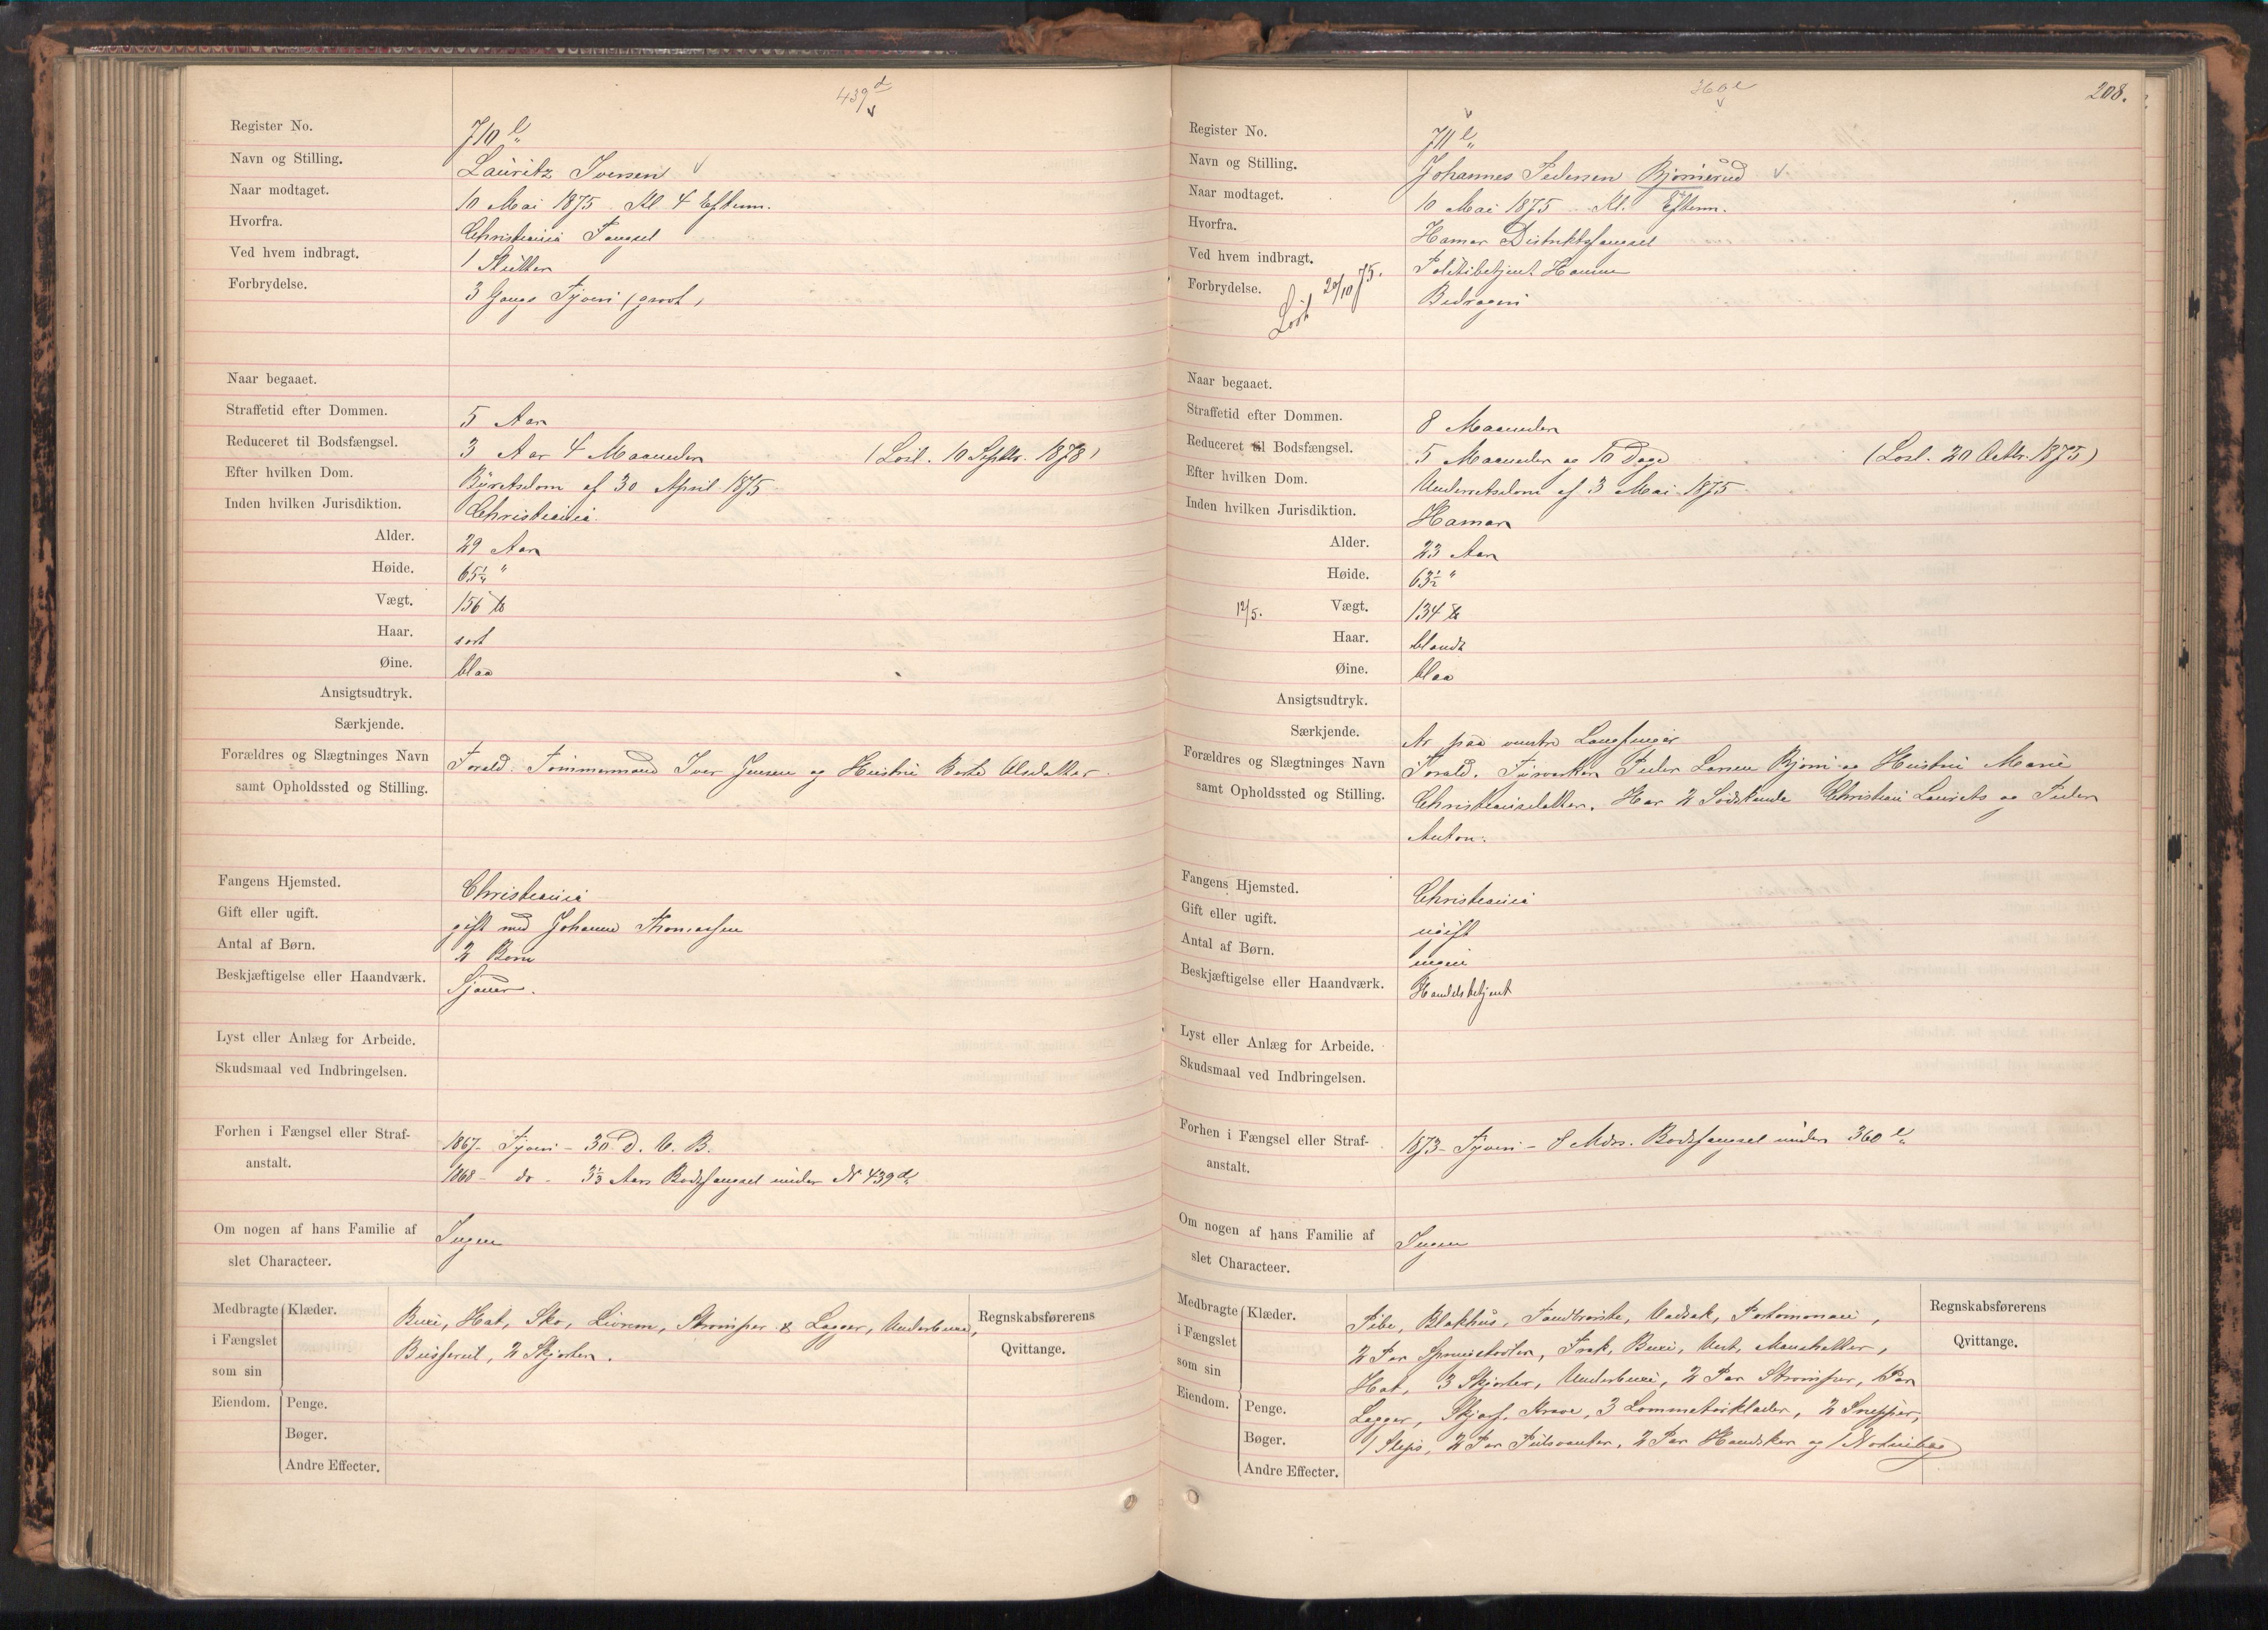 439 d
Register No. 710 e
Navn og Stilling. Lauritz Iversen
Naar modtaget. 10 Mai 1875 Kl 4 Efterm.
Hvorfra. Christiania Fængsel
Ved hvem indbragt. 1 Slutter
Forbrydelse. 3 Gangs Tyveri (grovt)
Naar begaaet.
Straffetid efter Dommen. 5 Aar
Reduceret til Bodsfængsel. 3 Aar 4 Maaneder (Løsl. 10 Septbr. 1878)
Efter hvilken Dom. Byretsdom af 30 April 1875
Inden hvilken Jurisdiktion. Christiania.
Alder. 29 Aar
Høide. 65 1/4 "
Vægt. 156 ℔
Haar. sort
Øine. blaa
Ansigtsudtryk.
Særkjende.
Forældres og Slægtninges Navn Foræld. Tømmermand Iver Jensen og Hustru Berte Olsdatter.
samt Opholdssted og Stilling.
Fangens Hjemsted. Christiania
Gift eller ugift. gift med Johanne Thomassen
Antal af Børn. 2 Børn
Beskjæftigelse eller Haandværk. Sjouer.
Lyst eller Anlæg for Arbeide.
Skudsmaal ved Indbringelsen.
Forhen i Fængsel eller Straf- 1867 - Tyveri - 30 D. V. B.
anstalt. 1868 - do - 3 1/3 Aars Bodsfængsel under N 439 d
Om nogen af hans Familie af Ingen
slet Characteer.
Medbragte Klæder. Buxe, Hat, Sko, Livrem, Strømper & Lægger, Underbuxe, Regnskabsførerens
i Fængslet Busserul, 2 Skjorter. Qvittange.
som sin
Eiendom. Penge.
Bøger.
Andre Effecter.
360 e
208.
Register No. 711 e
Navn og Stilling. Johannes Pedersen Bjørnerud
Naar modtaget. 10 Mai 1875 Kl. Efterm.
Hvorfra. Hamar Distriktsfængsel
Ved hvem indbragt. Politibetjent
Forbrydelse. Løsl 20/10 75. Bedrageri
Naar begaaet.
Straffetid efter Dommen. 8 Maaneder
Reduceret til Bodsfængsel. 5 Maaneder og 10 Dage (Løsl. 20 Octbr. 1875)
Efter hvilken Dom. Underretsdom af 3 Mai 1875
Inden hvilken Jurisdiktion. Hamar
Alder. 23 Aar
Høide. 63 1/2 "
12/5. Vægt. 134 ℔
Haar. blondt
Øine. blaa
Ansigtsudtryk.
Særkjende. Ar paa venstre Langfinger
Forældres og Slægtninges Navn Foræld. Peder Larsen Bjørn og Hustru Marie
samt Opholdssted og Stilling. Christiansdatter. Har 2 Sødskende Christian Laurits og Peder
Anton.
Fangens Hjemsted. Christiania
Gift eller ugift. ugift
Antal af Børn. ingen
Beskjæftigelse eller Haandværk. Handelsbetjent
Lyst eller Anlæg for Arbeide.
Skudsmaal ved Indbringelsen.
Forhen i Fængsel eller Straf- 1873 - Tyveri - 8 Mdrs. Bodsfængsel under 360 e
anstalt.
Om nogen af hans Familie af Ingen
slet Characteer.
Medbragte Klæder. Pibe, Blækhus, Tandbørste, Vadsæk, Portemonai, Regnskabsførerens
i Fængslet 2 Par Springstøvler, Frak, Buxe, Vest, Manchetter, Qvittange.
som sin Hat, 3 Skjorter, Underbuxe, 2 Par Strømper, 1 Par
Eiendom. Penge. Lægger, Skjærf, Krave, 3 Lommetørklæder, 2 Snipper,
Bøger. 1 Slips, 2 Par Pulsvanter, 2 Par Handsker og 1 Notisbog
Andre Effecter.